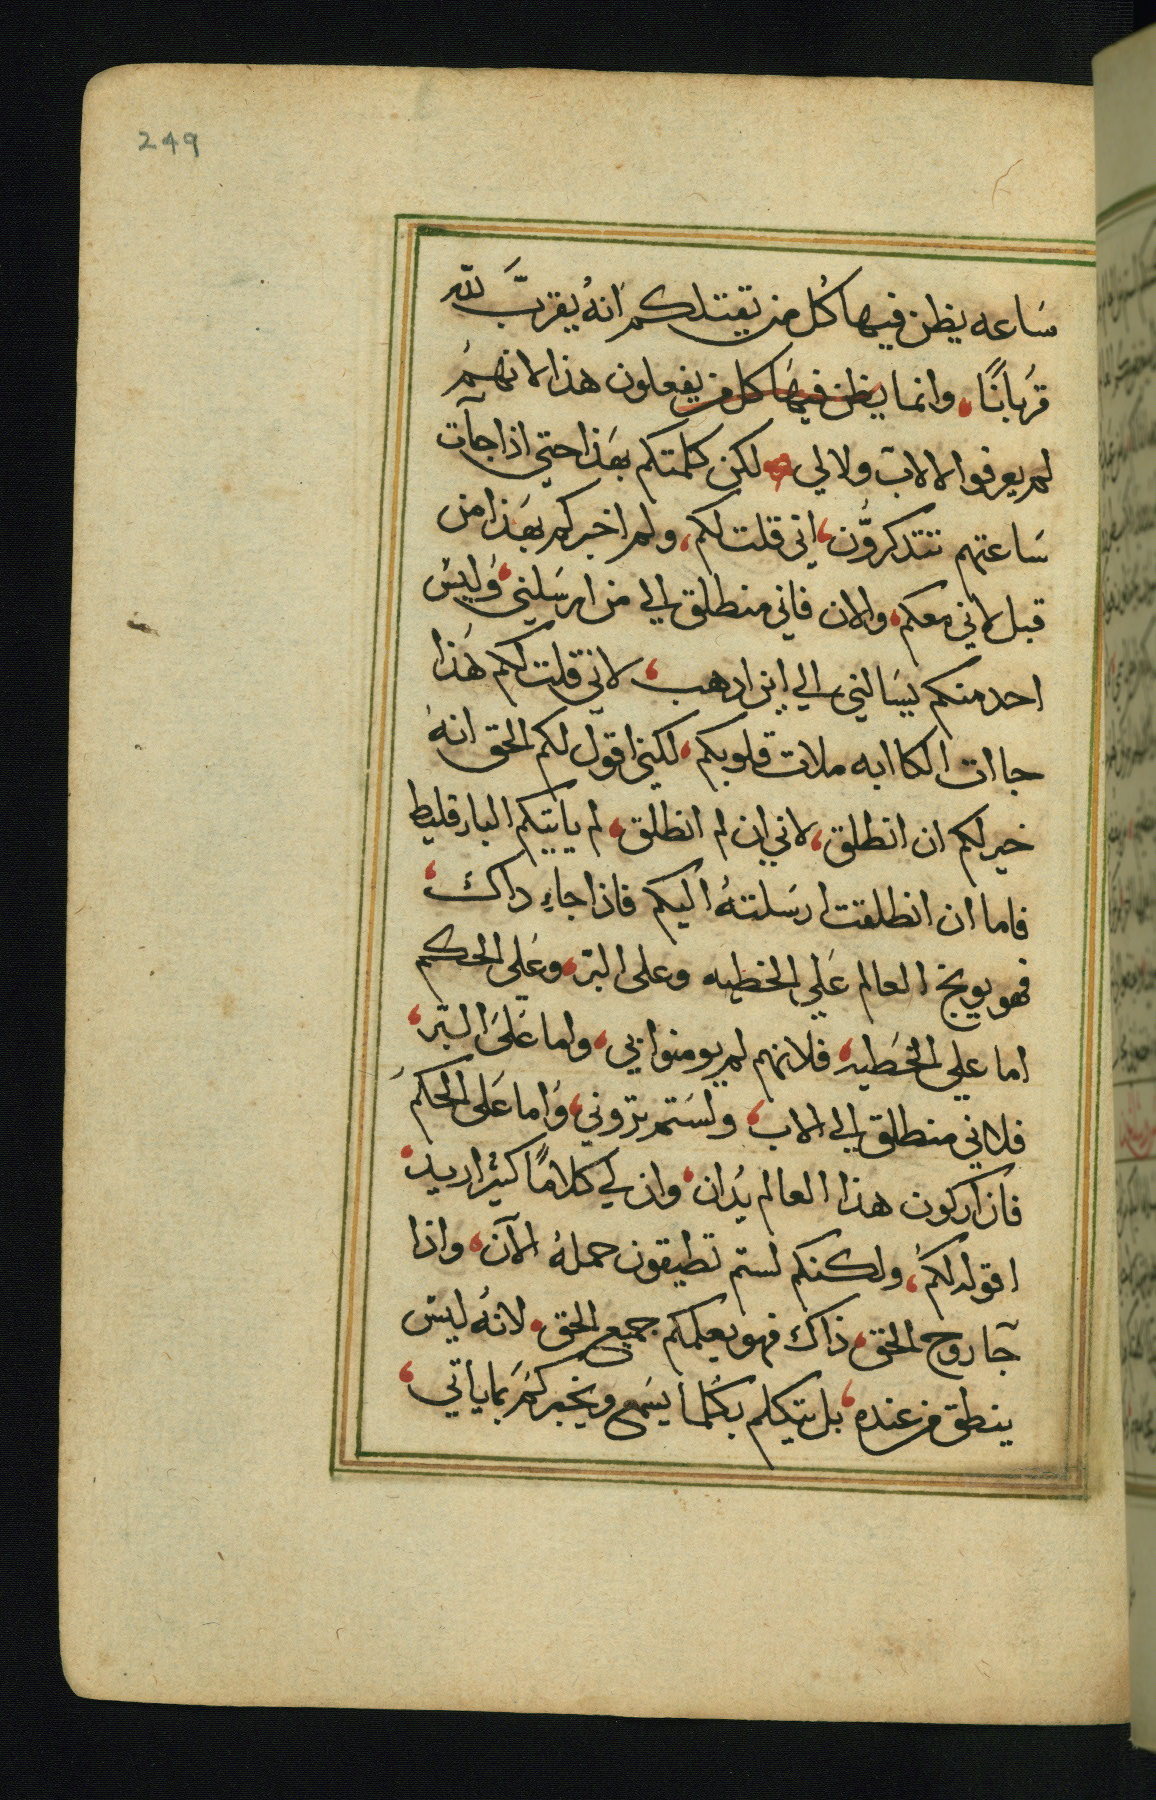 249
ساعه يظن فيها كُل من يقتلكم انهُ يقربّ لله
قربانًا، وانما يظن فيها كل من يفعلون هذا لانهم
لم يعرفوا لا الاب ولا لي لكن كلمتكم بهذا حتي اذا جآت
ساعتهم تتذكروُن، اني قلت لكم، ولم اخبركم بهذا من
قبل لاني معكم، والان فاني منطلق الي من ارسلني، وليس
احد منكم يسالني الي اين اذهب، لاني قلت لكم هذا
جاات الكاابه ملات قلوبكم، لكني اقول لكم الحق انهُ
خير لكم ان انطلق، لاني ان لم انطلق، لم ياتيكم البارقليط
فاما ان انطلقت ارسلتهُ اليكم فاذا جاء داك،
فهو يوبخ العالم علي الخطيه وعلى البرّ، وعلى الحكم
اما علي الخطيه، فلانهم لم يومنوا بي، واما على البرّ،
فلاني منطلق الي الاب، ولستم تروني، واما على الحكم
فان اركون هذا العالم يُدان، وان لي كلامًا كثيرا اريد،
اقوله لكم، ولكنكم لستم تطيقون حملهُ الآن، واذا
جآ روح الحق، ذاك فهو يعلمكم جميع الحق، لانهُ ليس
ينطق من عنده، بل يتكلم بكلما يسمع ويخبركم بما يأتي،